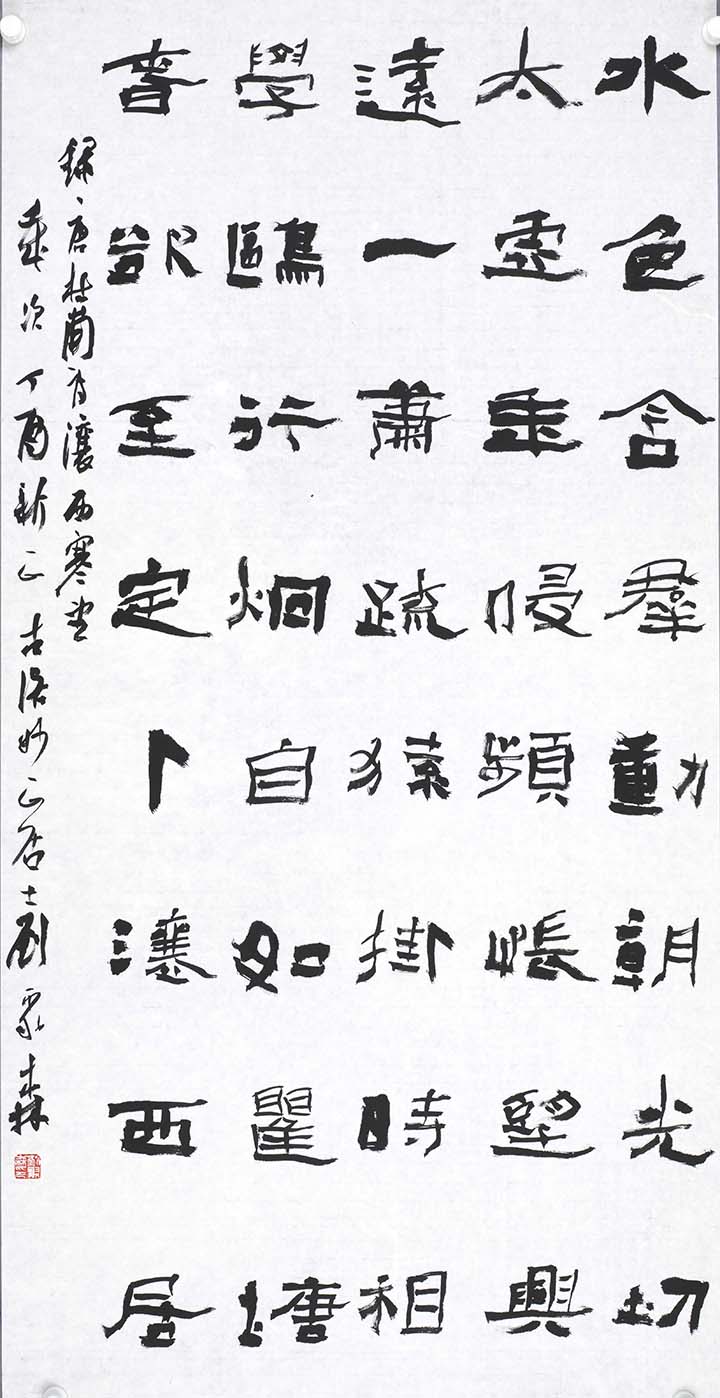 水色含羣動朝光切
太虛年侵頻悵望興
遠一蕭疏猿掛時相
學鷗行烱自如瞿塘
春欲至定卜瀼西居
錄唐杜甫瀼西寒望
歲次丁酉新正古妙正居士劉家森